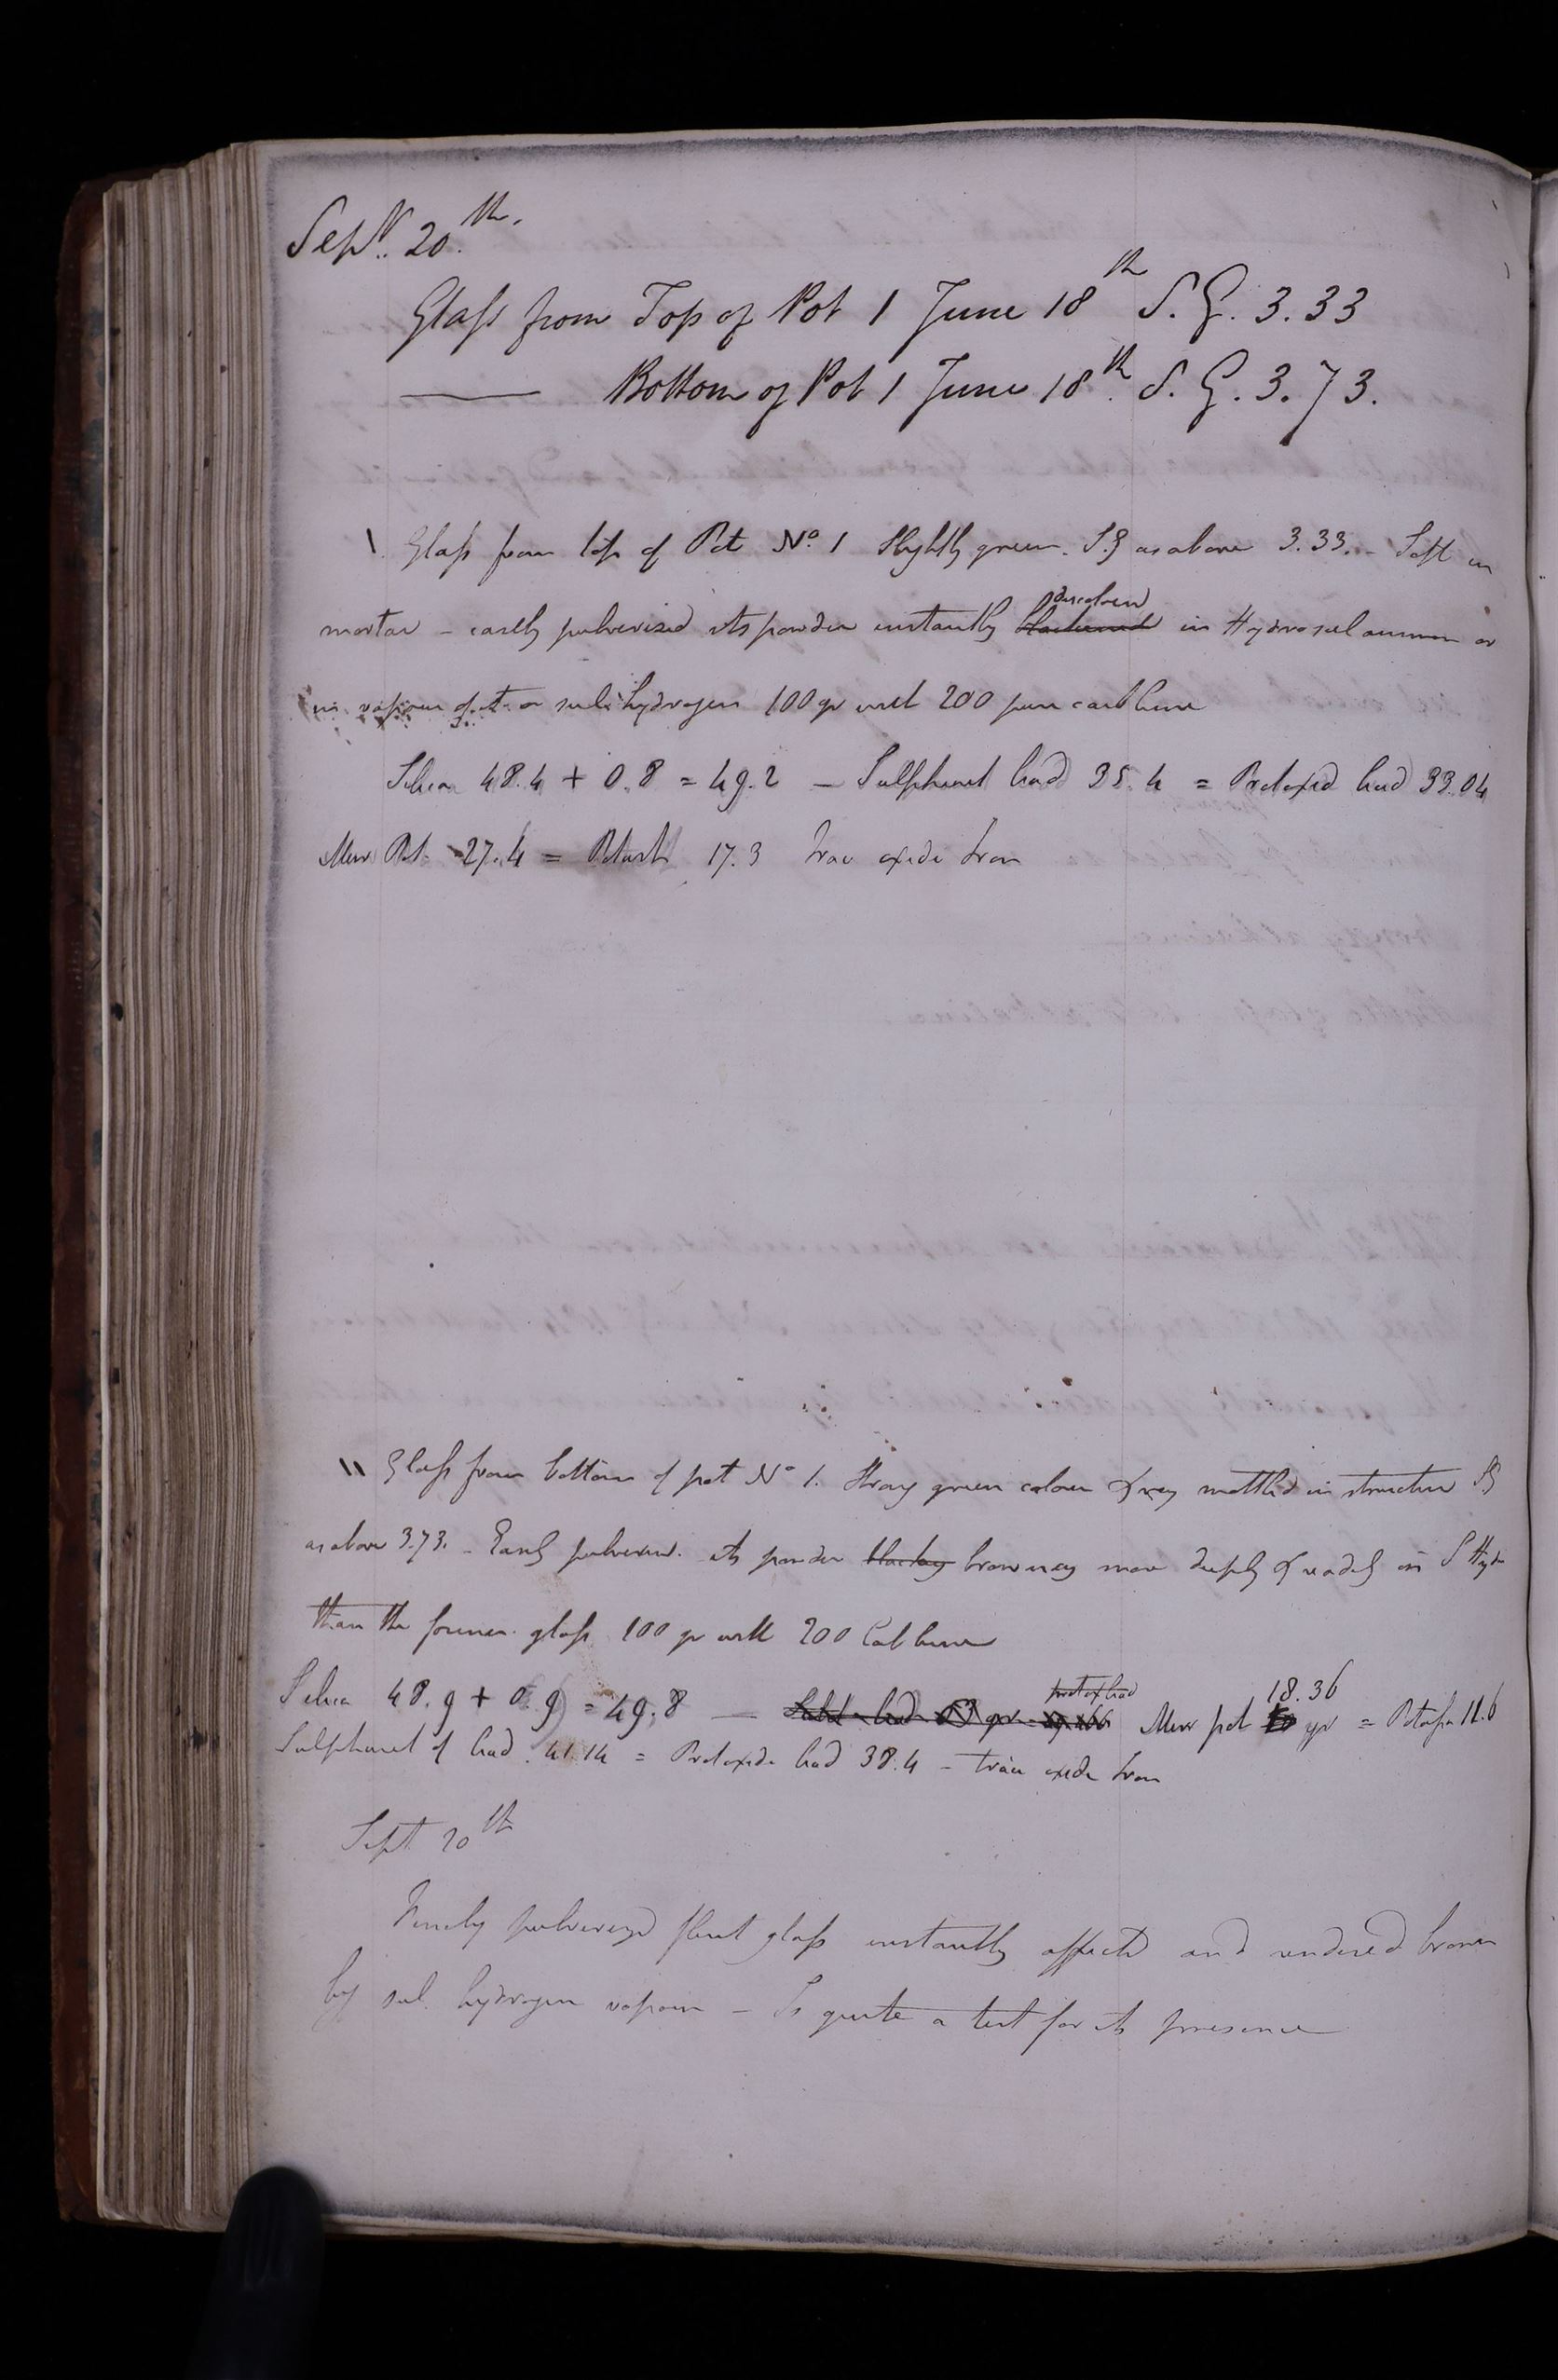 Sept. 20th.
Glass from Top of Pot 1 June 18th S.G. 3.33
—— Bottom of Pot 1 June 18th. S.G. 3.73.
\ Glass from top of Pot No. 1 Slightly green. S.G as above 3.33. - Soft in
mortar - easily pulverised its powder instantly blackened discolored in Hydrosul ammon or
in vapour of it or sul. hydrogen 100 gr with 200 pure carb baryta
Silica 48.4 + 0.8 = 49.2 — Sulphuret lead 35.4 = Protoxid lead 33.04
Mur Pot. 27.4 = Potash 17.3 trac oxide Iron
\\ Glass from bottom of pot No 1. Strong green colour & very mottled in structure SG
as above 3.73. - Easily pulverised. its powder blacking browning more deeply & readily in S Hydn
than the former glass 100 gr with 200 Carb
Silica 48.9 + 0.9 = 49.8 — protox lead Mur pot 18.36 gr = Potash 11.6
Sulphuret of lead 41.14 = Protoxide lead 38.4 - trace oxide Iron
Sept 20th
Finely pulverized flint glass instantly affected and rendered brown
by sul. hydrogen vapour - Is quite a test for its presence